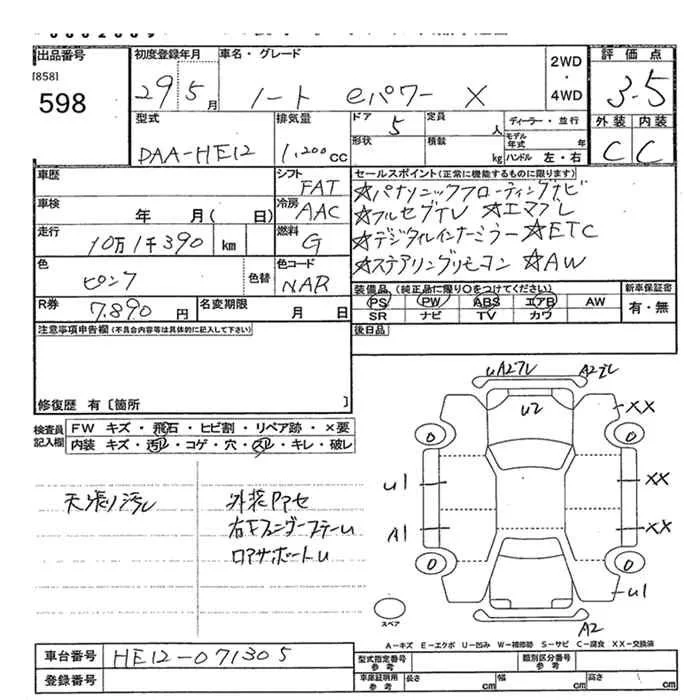 出品番号
[858]
598
初度登録年月
29 5月
車名・グレード
ノート eパワー X
2WD
・
4WD
評価点
3.5
外装 内装
C C
型式
DAA-HE12
排気量
1,200cc
ドア 5
定員 人
ディーラー・並行
形状
積載 kg
モデル年式 年
ハンドル 左・右
車歴
シフト
FAT
車検 年 月( 日)
冷房
AAC
走行
10万1千390 km
燃料
G
色
ピンク
色替
色コード
NAR
R券
7,890円
名変期限 月 日
セールスポイント(正常に機能するものに限ります)
☆パナソニックフローティングナビ
☆フルセグTV ☆エマブレ
☆デジタルインナーミラー☆ETC
☆ステアリングリモコン ☆AW
装備品(純正品に限り○をつけてください)
新車保証書
PS PW ABS エアB AW
SR ナビ TV カワ
有・無
後日品
注意事項申告欄(不具合内容等は具体的に記入して下さい)
修復歴 有〔箇所 〕
検査員記入欄
FW キズ・飛石・ヒビ割・リペア跡・×要
内装 キズ・汚れ・コゲ・穴・スレ・キレ・破レ
天張り汚レ
外装Pアセ
右Fフェンダーステーu
ロアサポートu
uA2フレ
A2ズレ
u2
XX
u1
XX
A1
XX
u1
A2
0
0
0
0
スペア
A－キズ E－エクボ U－凹み W－補修跡 S－サビ C－腐食 XX－交換済
車台番号
HE12-071305
登録番号
型式指定番号 参考
類別区分番号 参考
車庫証明用 参考
長さ cm
幅 cm
高さ cm